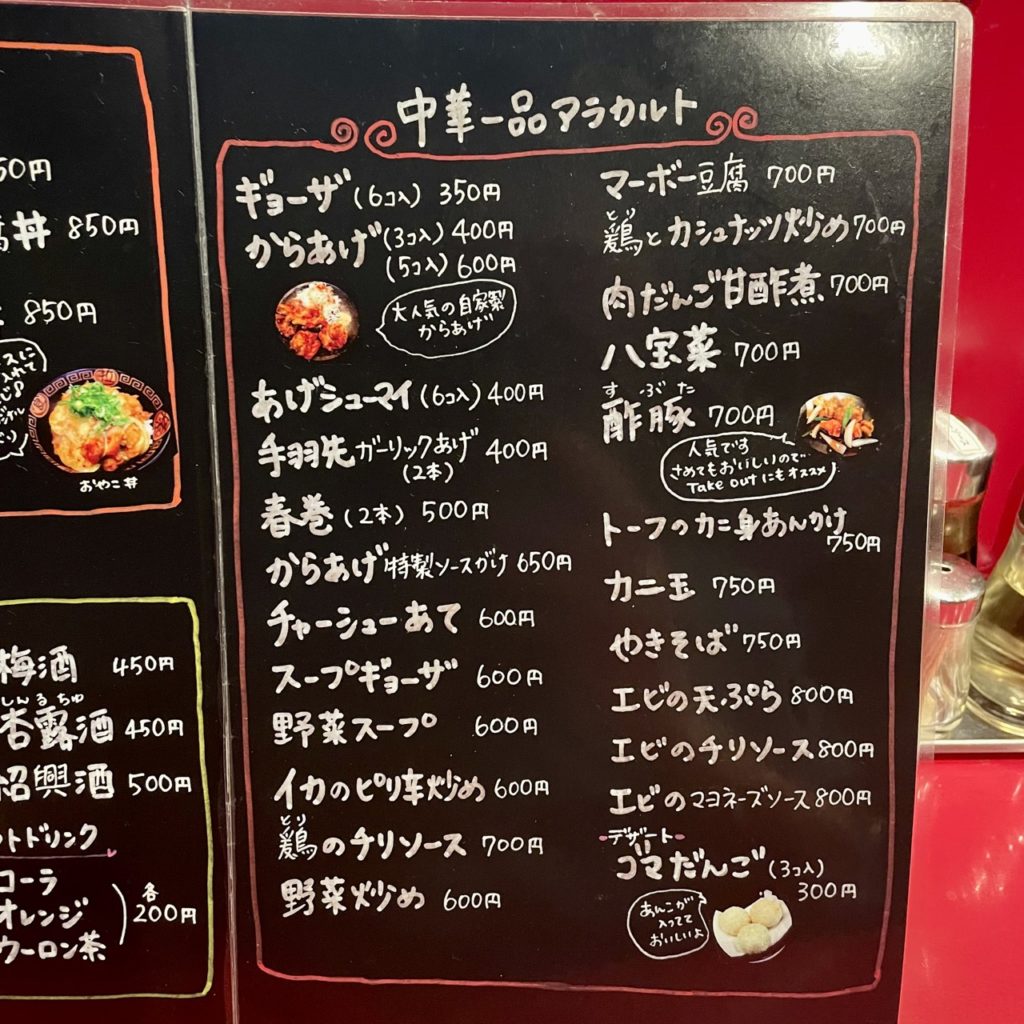 50円
丼 850円
850円
おやこ丼
梅酒 450円
しんるちゅ
杏露酒 450円
紹興酒 500円
ットドリンク
コーラ
オレンジ
ウーロン茶
各
200円
中華一品アラカルト
ギョーザ(6コ入) 350円
からあげ(3コ入) 400円
(5コ入) 600円
大人気の自家製
からあげ!!
あげシューマイ(6コ入) 400円
手羽先ガーリックあげ 400円
(2本)
春巻(2本) 500円
からあげ特製ソースがけ 650円
チャーシューあて 600円
スープギョーザ 600円
野菜スープ 600円
イカのピリ辛炒め 600円
とり
鶏のチリソース 700円
野菜炒め 600円
マーボー豆腐 700円
とり
鶏とカシュナッツ炒め 700円
肉だんご甘酢煮 700円
八宝菜 700円
すぶた
酢豚 700円
人気です
さめてもおいしいので
Take outにもオススメ
トーフのカニ身あんかけ
750円
カニ玉 750円
やきそば 750円
エビの天ぷら 800円
エビのチリソース 800円
エビのマヨネーズソース 800円
-デザート-
ゴマだんご(3コ入)
300円
あんこが
入ってて
おいしいよ